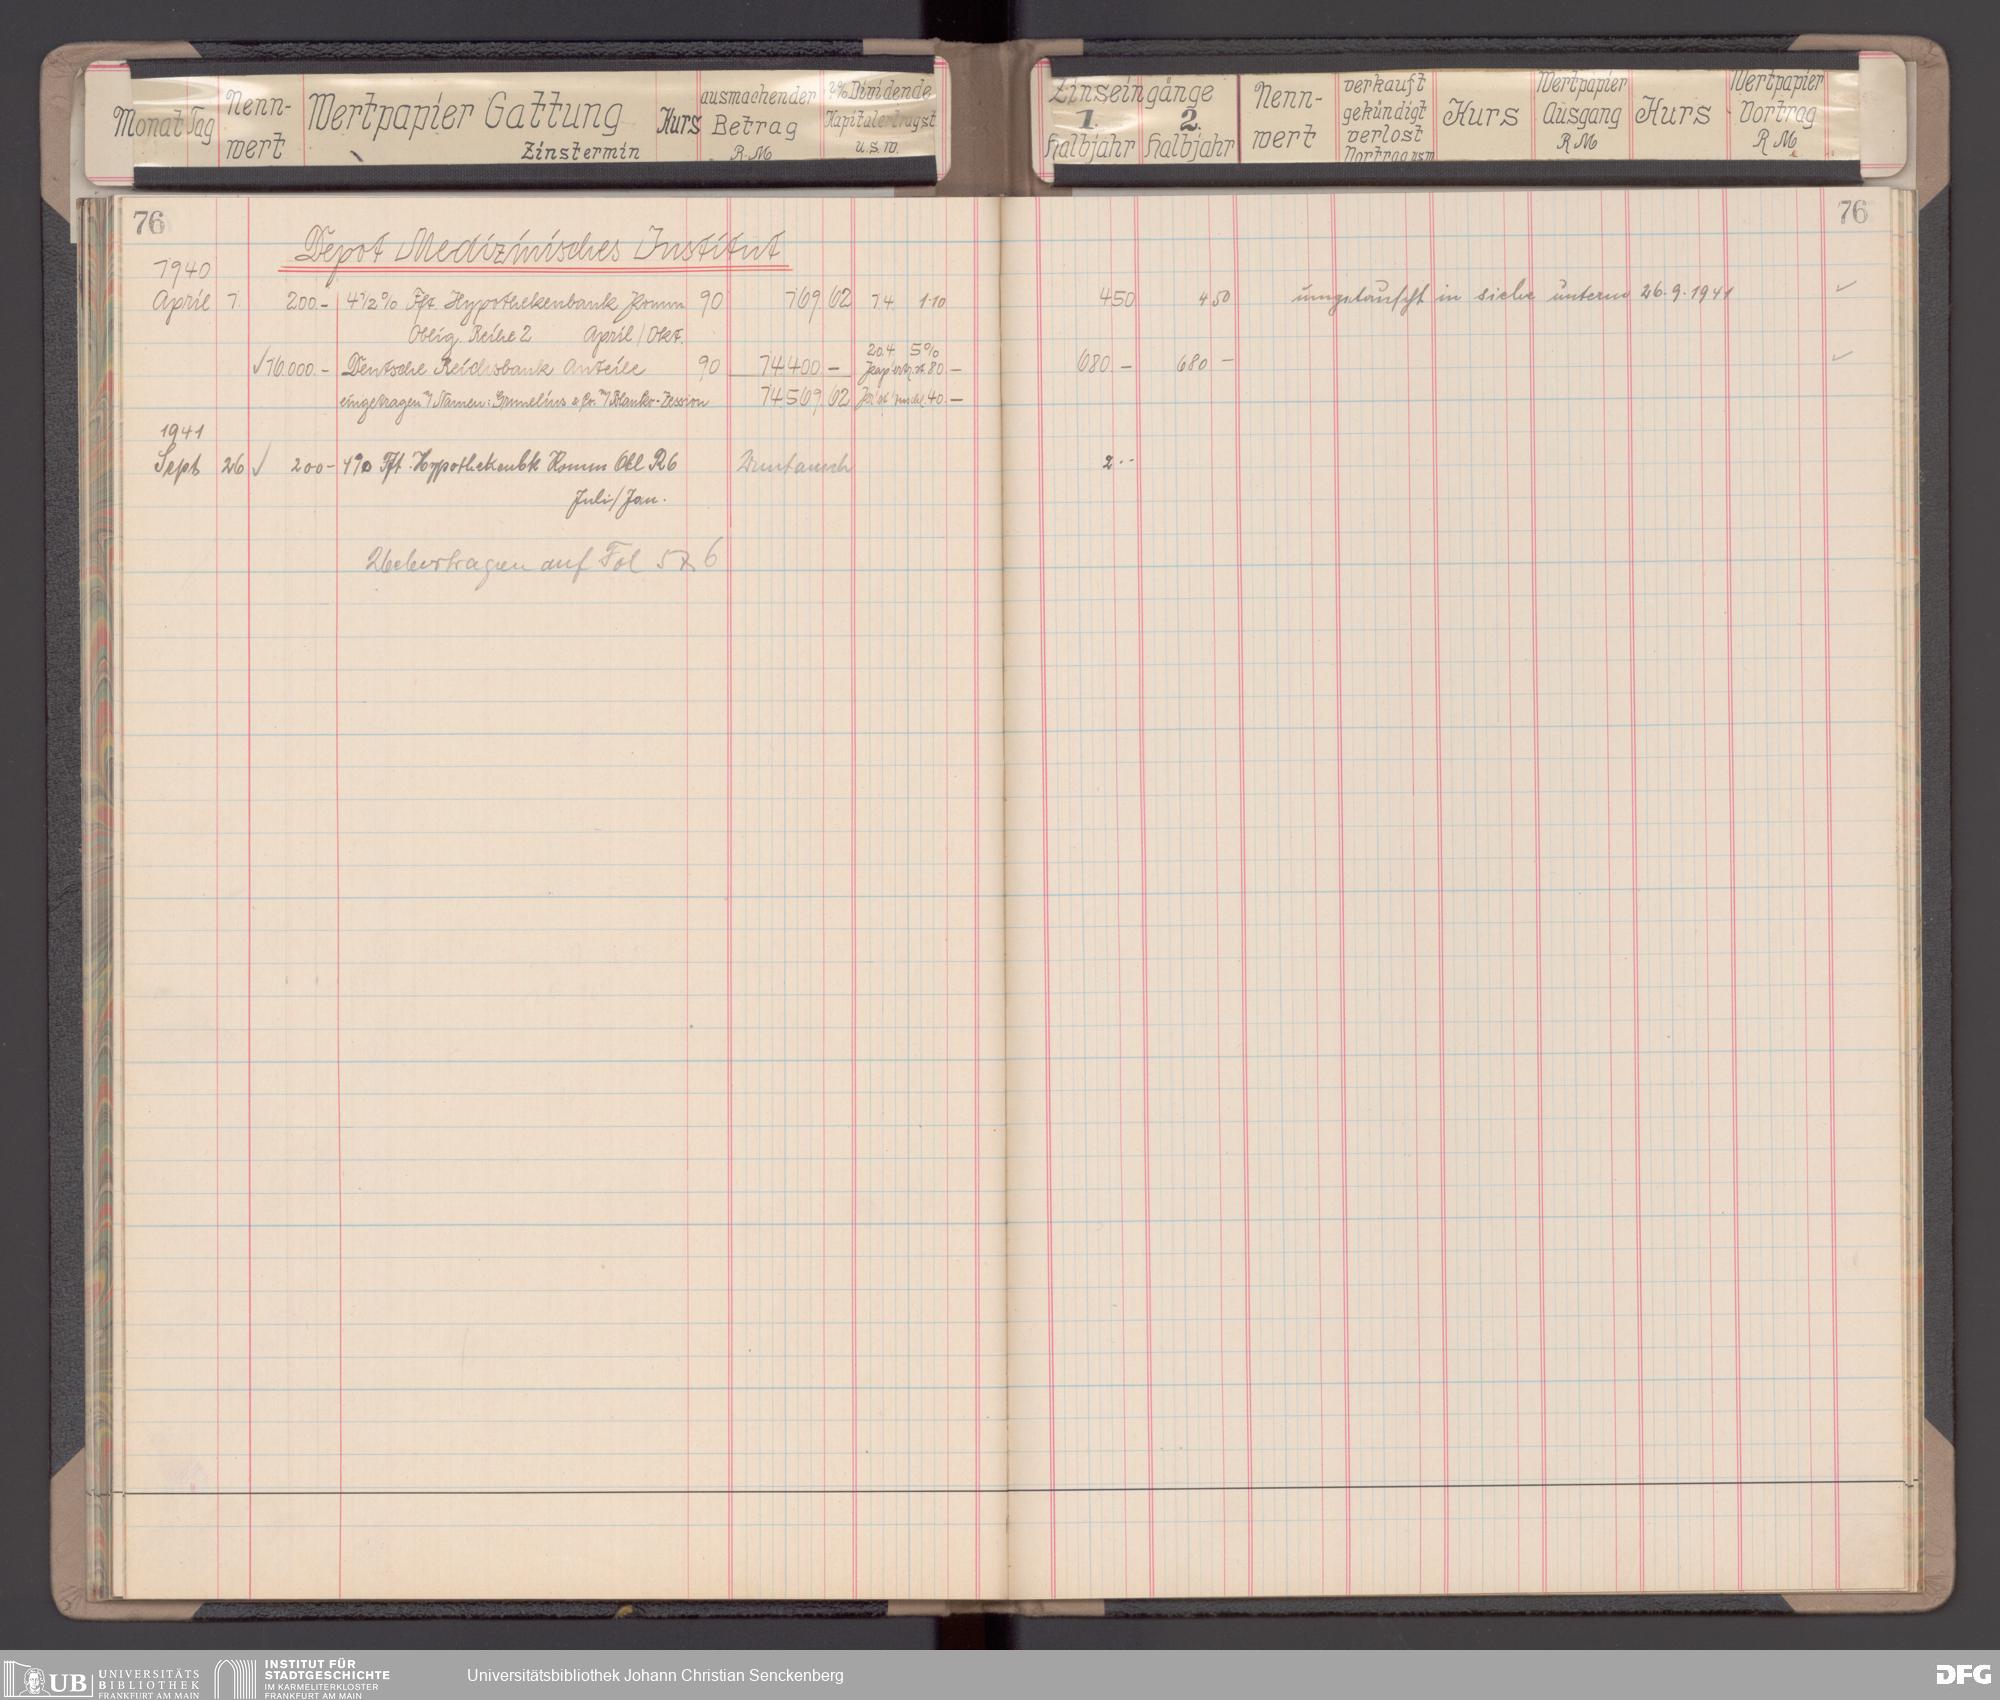 Monat Tag Nenn-wert Wertpapier Gattung Zinstermin Kurs ausmachender Betrag RM % Dividende Kapitalertragst u.s.w.
Zinseingänge 1. Halbjahr 2. Halbjahr Nenn-wert verkauft gekündigt verlost Vortrag usw Kurs Wertpapier Ausgang RM Kurs Wertpapier Vortrag RM
76 76
Depot Medizinisches Institut
1940
April 1. 200.- 4½% Fft. Hypothekenbank Komm. 90 169 62 1.4. 1.10 4 50 4 50 umgetauscht in siehe unterm 26.9.1941
Oblig. Reihe 2 April/Okt.
16.000.- Deutsche Reichsbank Anteile 90 14.400.- 20.4. 5% 80.- 680.- 680 -
eingetragen a/ Namen: Grunelius & Co. m/ Blanko-Zession 14.569 62 40.-
1941
Sept 26 200- 4% Fft. Hypothekenbk Komm Obl R6 Umtausch 2.--
Juli/Jan.
Uebertragen auf Fol 576
UB UNIVERSITÄTS
BIBLIOTHEK
FRANKFURT AM MAIN
INSTITUT FÜR
STADTGESCHICHTE
IM KARMELITERKLOSTER
FRANKFURT AM MAIN
Universitätsbibliothek Johann Christian Senckenberg
DFG